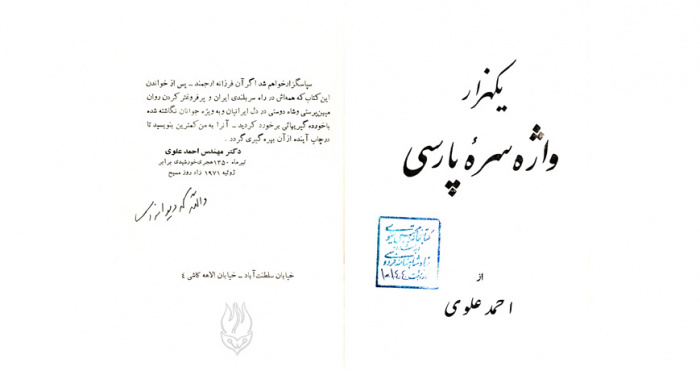 یکهزار
واژه سرهٔ پارسی
از
احمد علوی
سپاسگزار خواهم شد اگر آن فرزانه ارجمند ــ پس از خواندن
این کتاب که همه‌اش در راه سربلندی ایران و پرفروغتر کردن روان
میهن‌پرستی و شاه دوستی در دل ایرانیان و به ویژه جوانان نگاشته شده
با خورده گیریهائی برخورد کردید ــ آنرا به من کمترین بنویسید تا
در چاپ آینده از آن بهره گیری گردد .
دکتر مهندس احمد علوی
تیرماه ۱۳۵۰ هجری خورشیدی برابر
ژوئیه ۱۹۷۱ زاد روز مسیح
خیابان سلطنت‌آباد ــ خیابان الاهه کاشی ٤